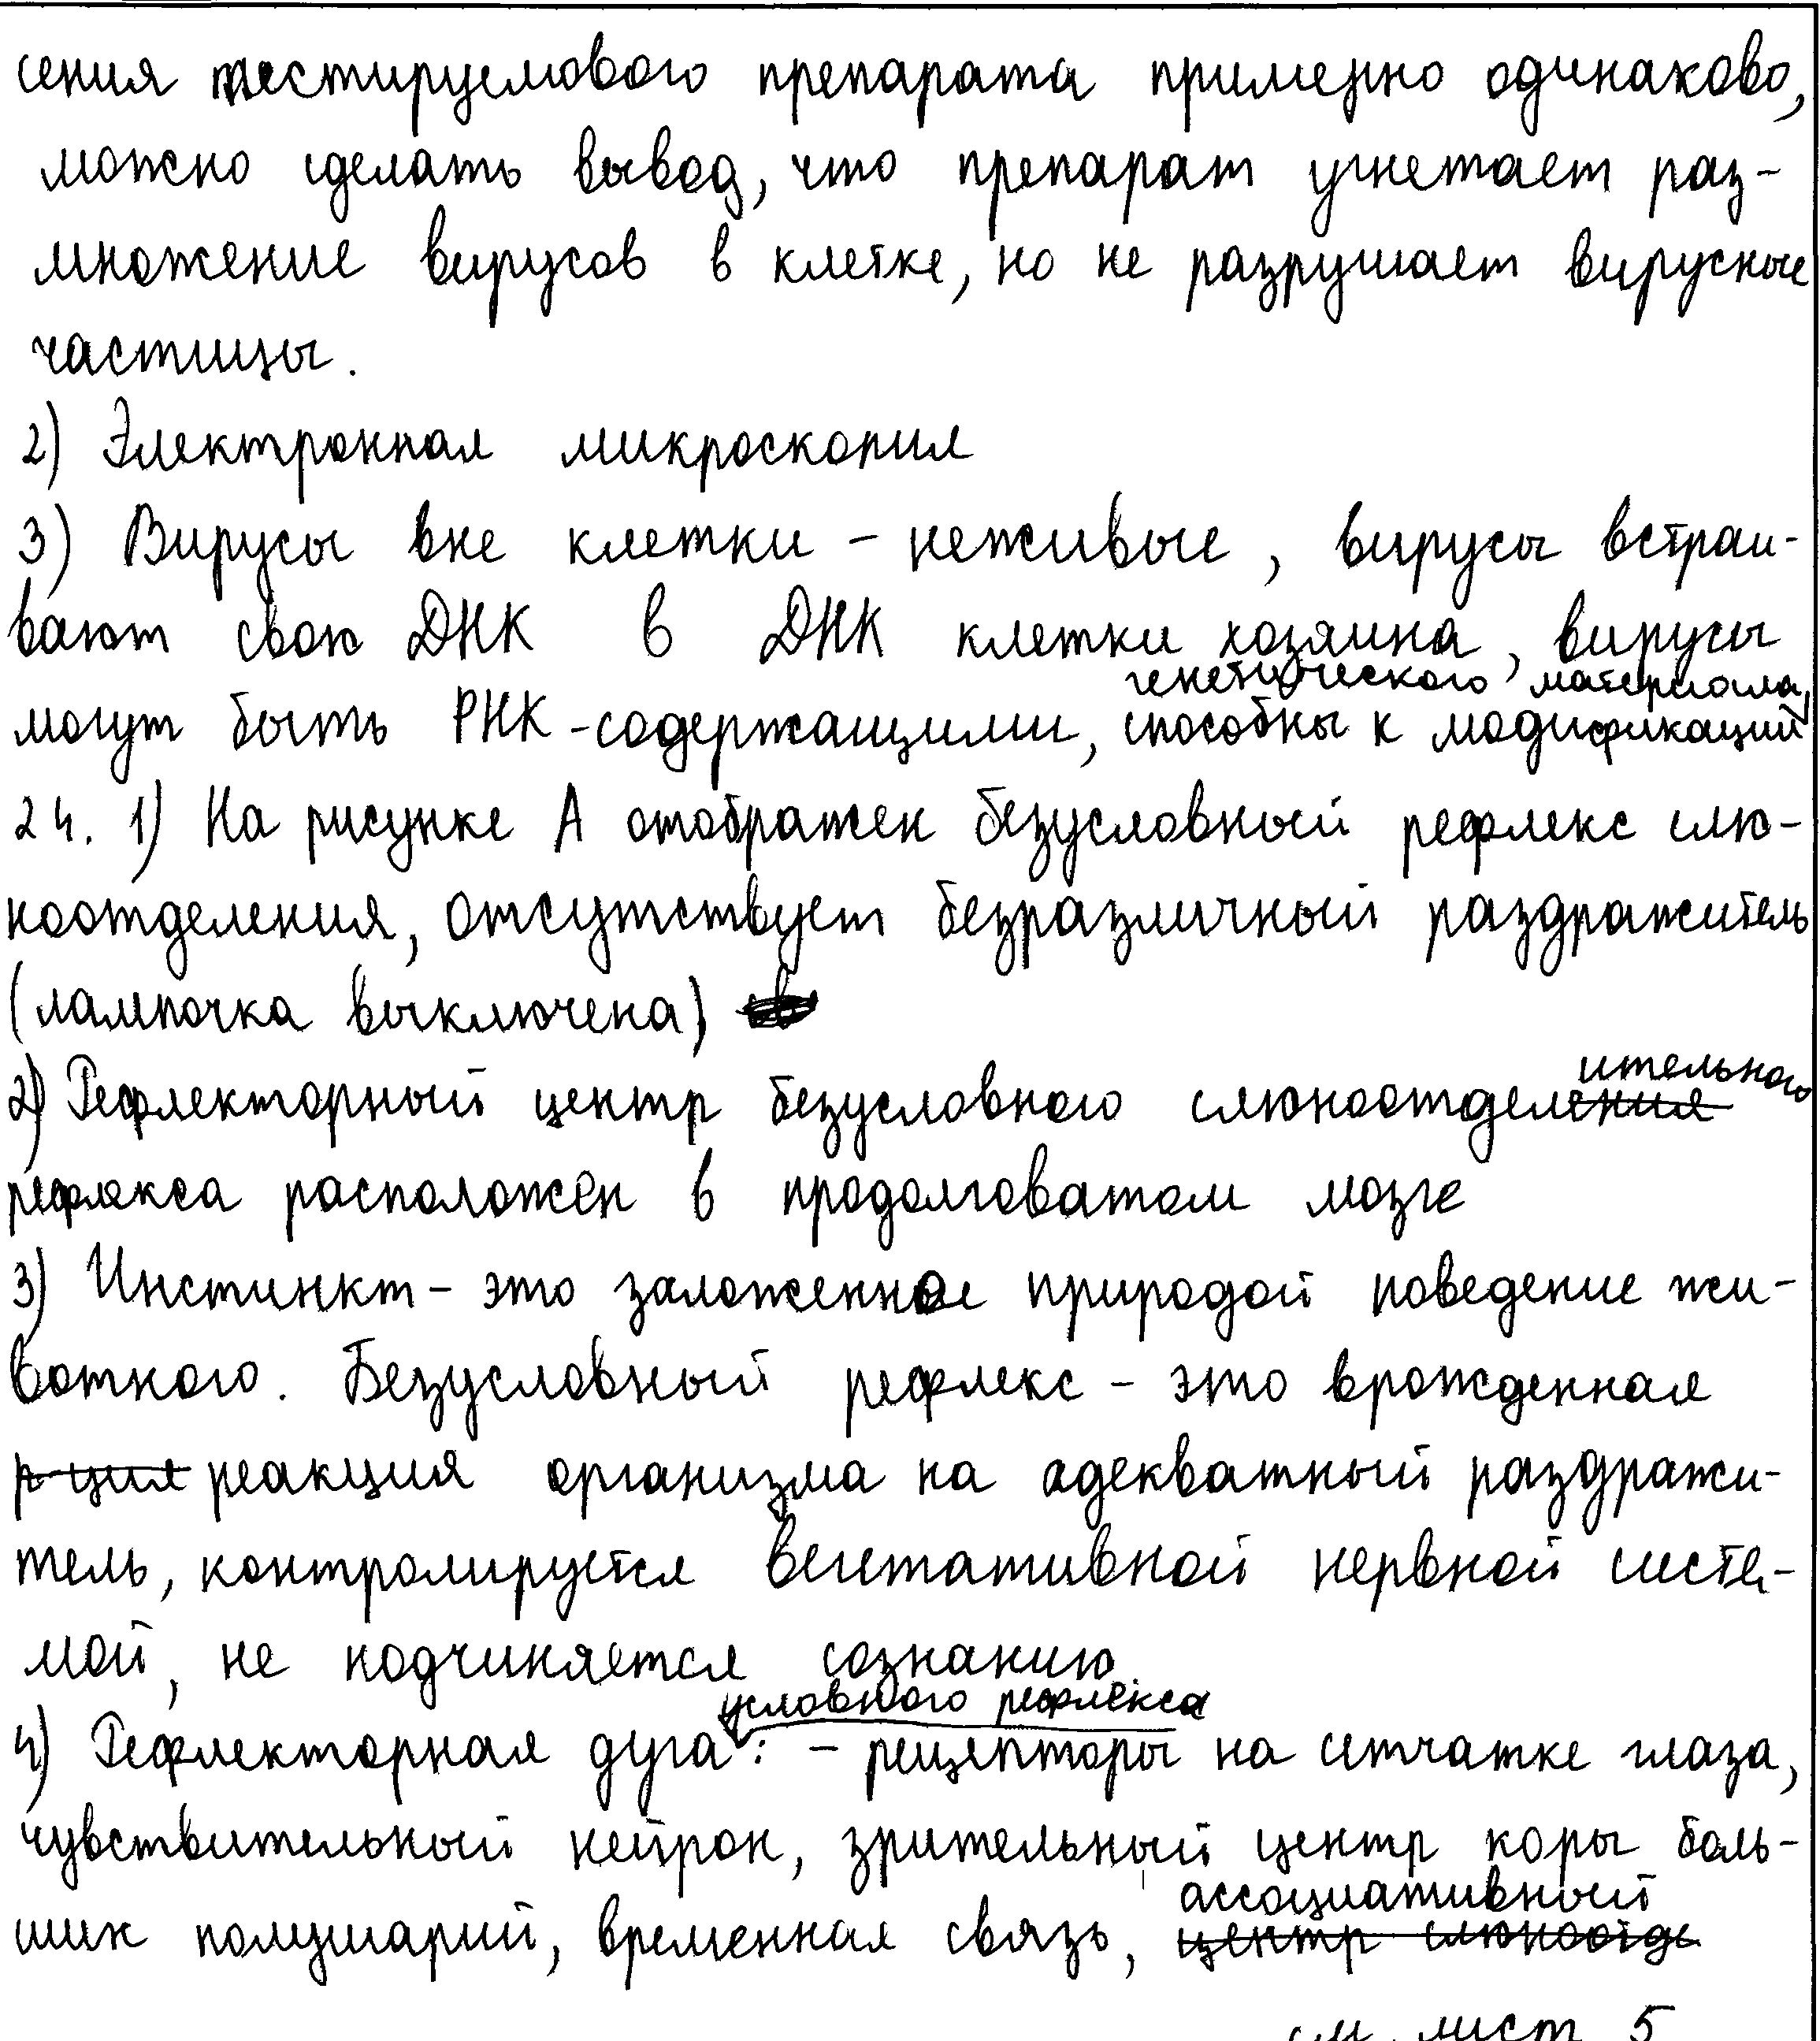 сения тестируемового препарата примерно одинаково,
можно сделать вывод, что препарат угнетает раз-
множение вирусов в клетке, но не разрушает вирусные
частицы.
2) Электронная микроскопия
3) Вирусы вне клетки - неживые, вирусы встраи-
вают свою ДНК в ДНК клетки хозяина, вирусы
генетического материала,
могут быть РНК-содержащими, способны к модификаций
24. 1) На рисунке А отображен безусловный рефлекс слю-
ноотделения, отсутствует безразличный раздражитель
(лампочка выключена)
ительного
2) Рефлекторный центр безусловного слюноотделения
рефлекса расположен в продолговатом мозге
3) Инстинкт - это заложенное природой поведение жи-
вотного. Безусловный рефлекс - это врожденная
р-ция реакция организма на адекватный раздражи-
тель, контролируется вегетативной нервной систе-
мой, не подчиняется сознанию.
условного рефлекса
4) Рефлекторная дуга: - рецепторы на сетчатке глаза,
чувствительный нейрон, зрительный центр коры боль-
ассоциативный
ших полушарий, временная связь, центр слюноотде
см. лист 5